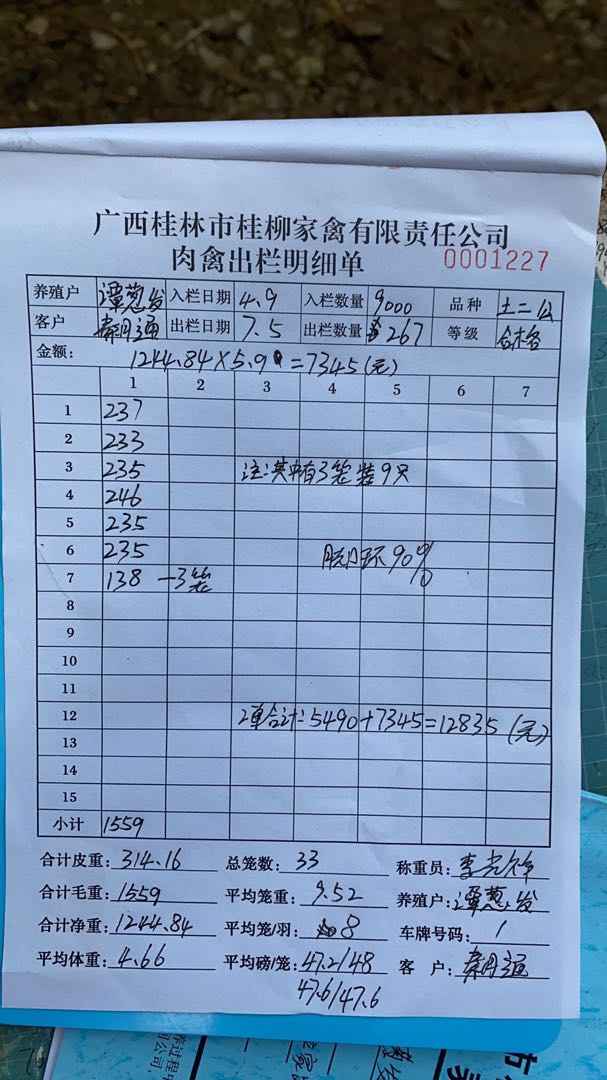 广西桂林市桂柳家禽有限责任公司
肉禽出栏明细单 0001227
养殖户 谭葱发 入栏日期 4.9 入栏数量 9000 品种 土二公
客户 秦明通 出栏日期 7.5 出栏数量 267 等级 合格
金额: 1244.84×5.9=7345(元)
1 2 3 4 5 6 7
1 237
2 233
3 235 注:其中有3笼装9只
4 246
5 235
6 235 脱口环90%
7 138 -3笼
8
9
10
11
12 2单合计:5490+7345=12835(元)
13
14
15
小计 1559
合计皮重: 314.16 总笼数: 33 称重员: 李光
合计毛重: 1559 平均笼重: 9.52 养殖户: 谭葱发
合计净重: 1244.84 平均笼/羽: 8 车牌号码: 1
平均体重: 4.66 平均磅/笼: 47.2/48 客户: 秦明通
47.6/47.6